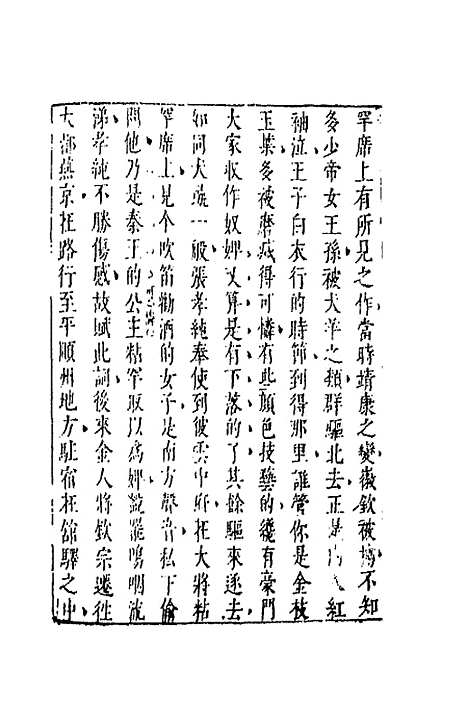 罕席上有所見之作當時靖康之變徽欽被擄不知
多少帝女王孫被犬羊之類群驅北去正是內人紅
袖泣王子白衣行的時節到得那里誰管你是金枝
玉葉多被磨滅得可憐有些顔色技藝的纔有豪門
大家收作奴婢又算是有下落的了其餘驅來逐去
如同犬彘一般張孝純奉使到彼雲中府在大將粘
罕席上見个吹笛勸酒的女子是南方聲音私下偷
問他乃是秦王的公主粘罕取以爲婢說罷嗚咽流
涕孝純不勝傷感故賦此詞後來金人將欽宗遷徃
大都燕京在路行至平順州地方駐宿在舘驛之中